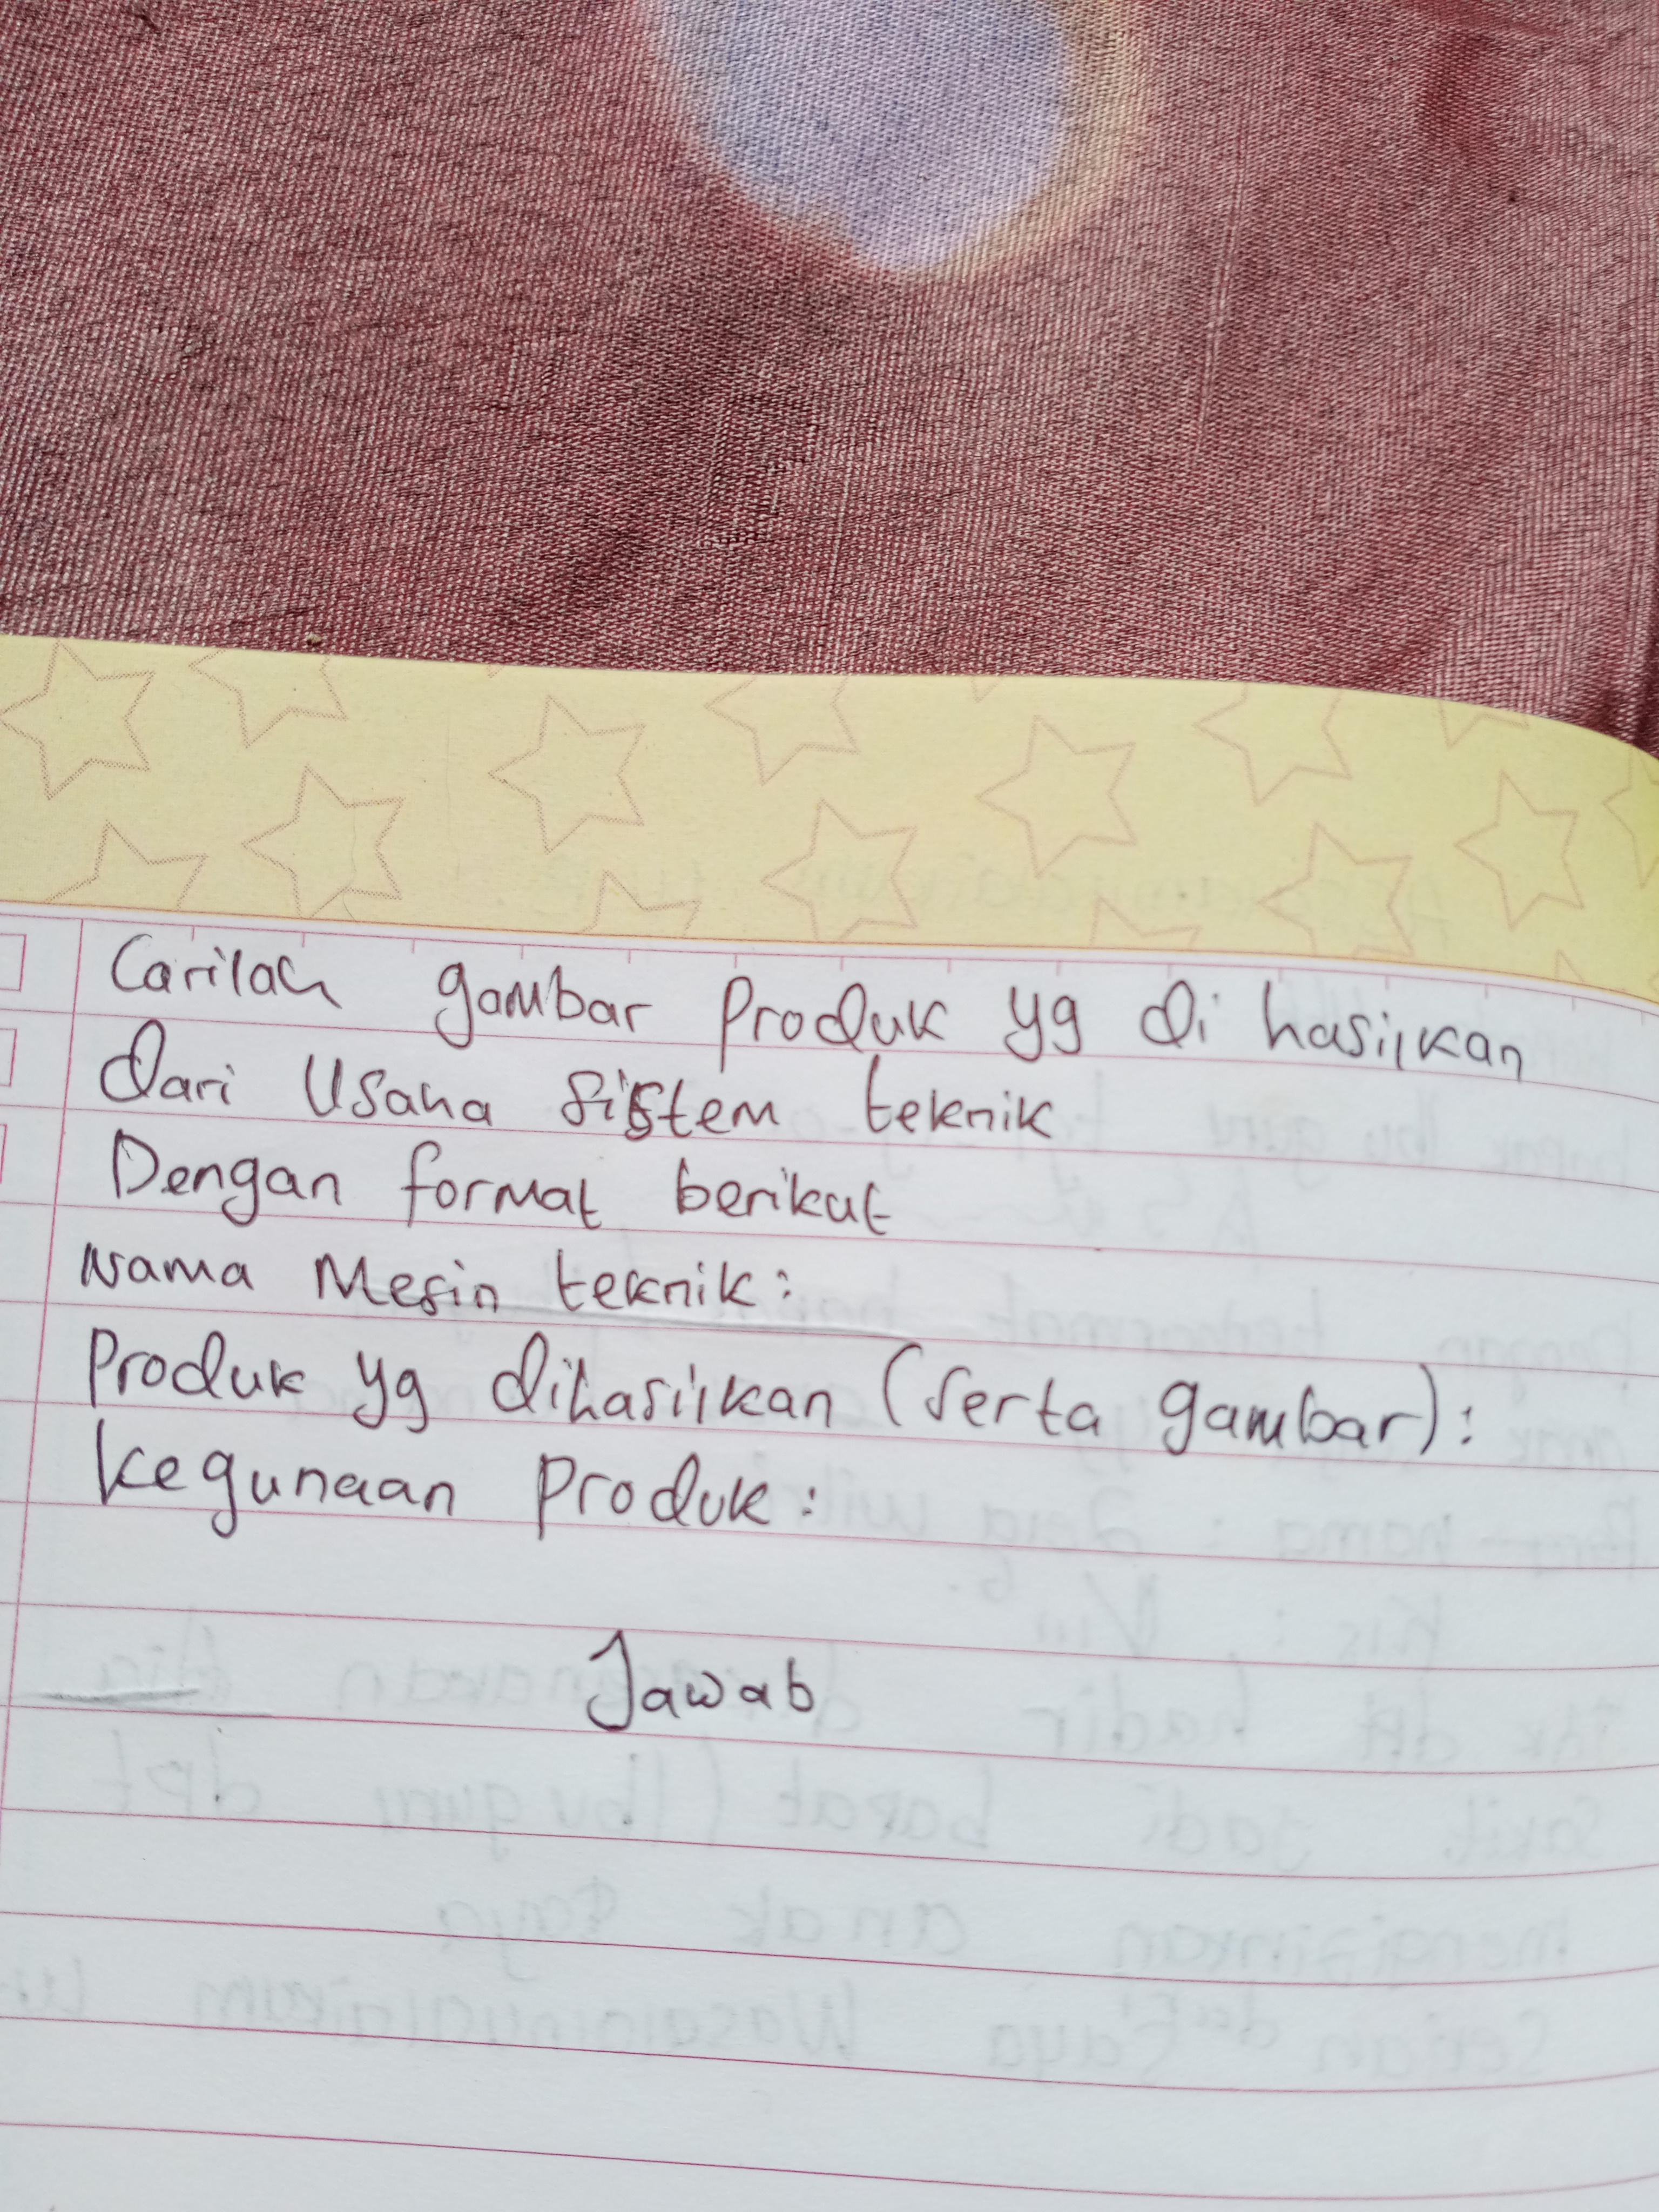 Carilah gambar Produk yg di hasilkan
dari Usaha sistem teknik
Dengan format berikut
Nama Mesin teknik:
Produk yg dihasilkan (serta gambar):
kegunaan Produk:
Jawab